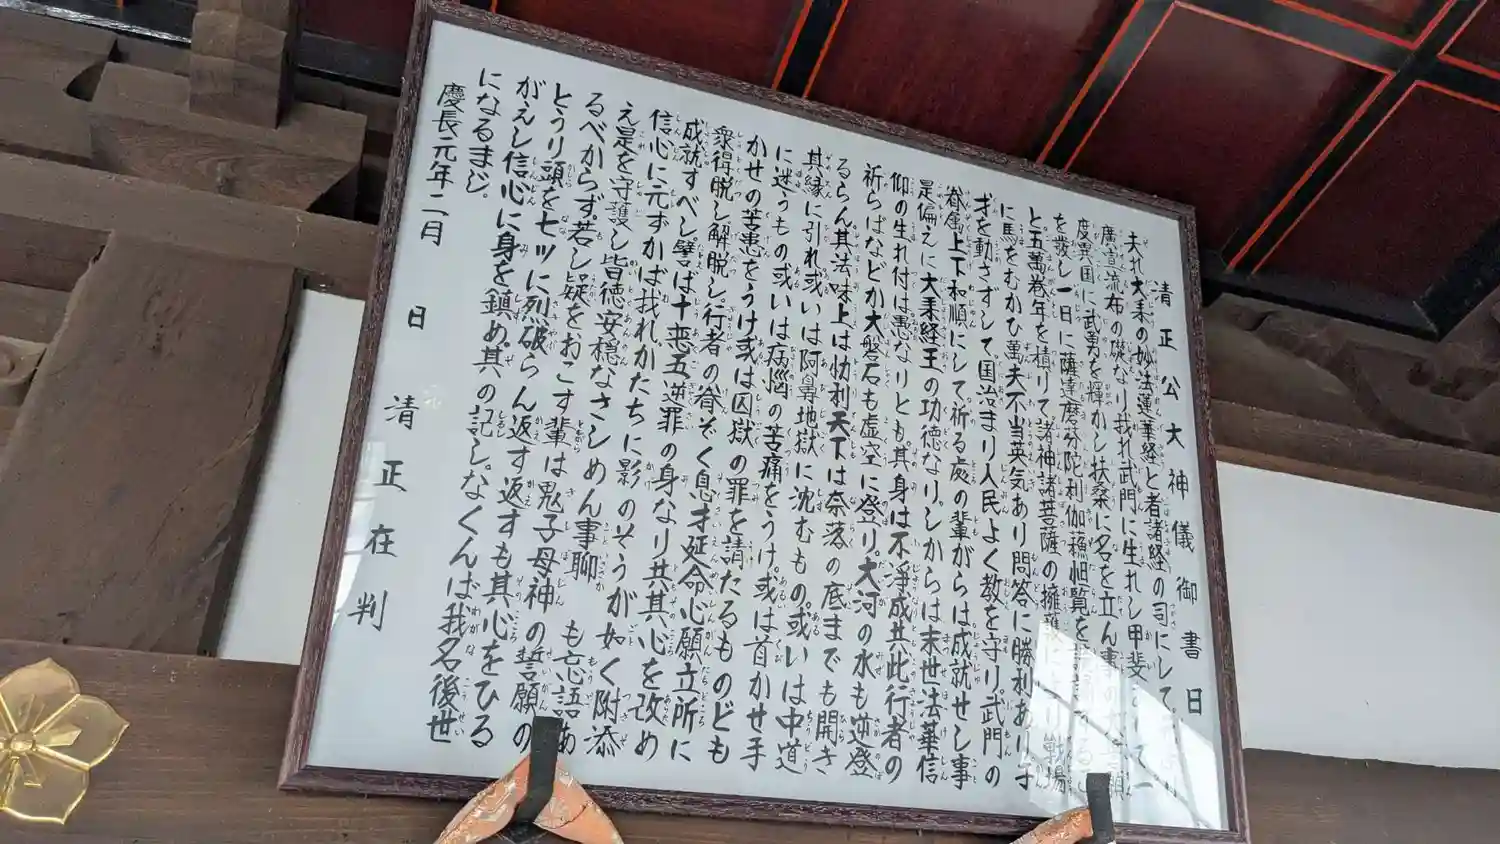 清正公大神儀御書曰
夫れ大乗の妙法蓮華経と者諸経の司にして
廣宣流布の礎なり我れ武門に生れし甲斐
度異国に武勇を輝かし扶桑に名を立ん事
を發し一日に薩達磨分陀利伽蘓怛覧を
と五萬巻年を積りて諸神諸菩薩の擁護に 戦場
に馬をむかひ萬夫不当英気あり問答に勝利あり寸
才を動さずして国治まり人民よく教を守り。武門の
眷属上下和順にして祈る處の輩がらは成就せし事
是偏えに大乗経王の功徳なり。しからは末世法華信
仰の生れ付は愚なりとも其身は不浄成共此行者の
祈らばなどか大磐石も虚空に登り。大河の水も逆登
るらん其法味上は忉利天下は奈落の底までも開き
其縁に引れ或いは阿鼻地獄に沈むもの。或いは中道
に迷うもの或いは病悩の苦痛をうけ。或は首かせ手
かせの苦患をうけ或は囚獄の罪を請たるものども
衆得脱し解脱し行者の眷ぞく息才延命心願立所に
成就すべし譬ば十悪五逆罪の身なり共其心を改め
信心に元ずかば我れかたちに影のそうが如く附添
え是を守護し皆徳安穏なさしめん事聊も忘語あ
るべからず。若し疑をおこす輩は鬼子母神の誓願の
とうり頭を七ツに烈破らん返す返すも其心をひる
がえし信心に身を鎮め。其の記しなくんば我名後世
になるまじ。
慶長元年二月 日 清正在判